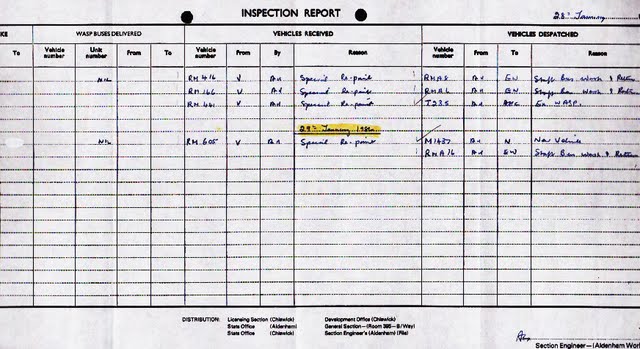 INSPECTION REPORT
28th January
KE WASP BUSES DELIVERED VEHICLES RECEIVED VEHICLES DESPATCHED
To Vehicle number Unit number From To Vehicle number From By Reason Vehicle number From By Reason
NIL RM 416 V Special Re-paint RMA8 EW Staff Bus Work & Return
RM 166 V Special Re-paint EW Staff Bus Work & Return
V Special Re-paint T235 Ex WASP.
29th January
NIL RM 605 V Special Re-paint M1437 N New Vehicle
RMA16 EW Staff Bus Work & Return
DISTRIBUTION: Licensing Section (Chiswick) Development Office (Chiswick)
State Office (Aldenham) General Section—(Room 395—B/Way)
State Office (Chiswick) Section Engineer's (Aldenham) (File)
Section Engineer—(Aldenham Wor